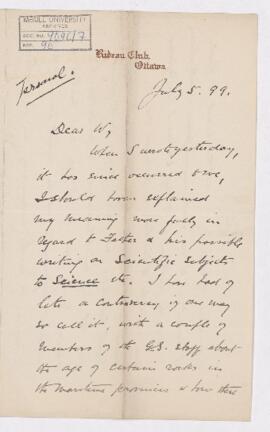 McGILL UNIVERSITY
ARCHIVES
ACC. NO.
REF.
Rideau Club,
Ottawa
Personal.
July 5. 99.
Dear W,
When I wrote yesterday,
it has since occurred to me,
I should have explained
my meaning more fully in
regard to & his possible
writing on Scientific subjects
to Science etc. I have had of
late a controversy if one may
so call it, with a couple of
members of the G.S. staff about
the age of certain rocks in
the Maritime provinces & how they